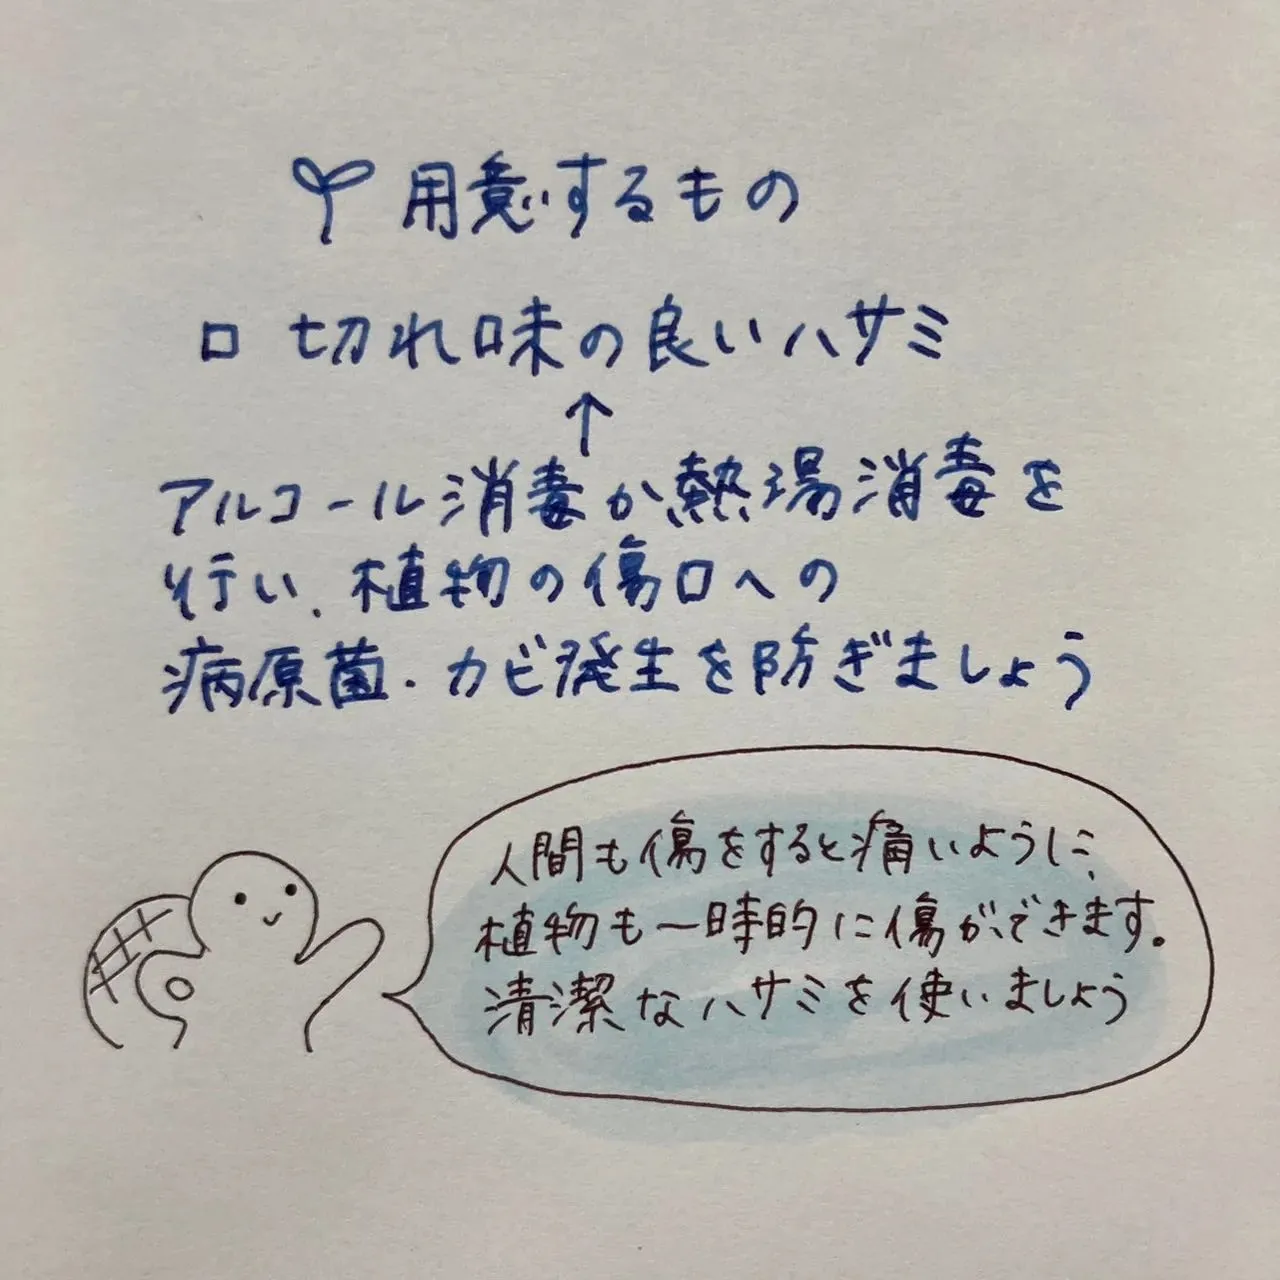 用意するもの
□ 切れ味の良いハサミ
↑
アルコール消毒か熱湯消毒を
行い、植物の傷口への
病原菌・カビ発生を防ぎましょう
人間も傷をすると痛いように、
植物も一時的に傷ができます。
清潔なハサミを使いましょう